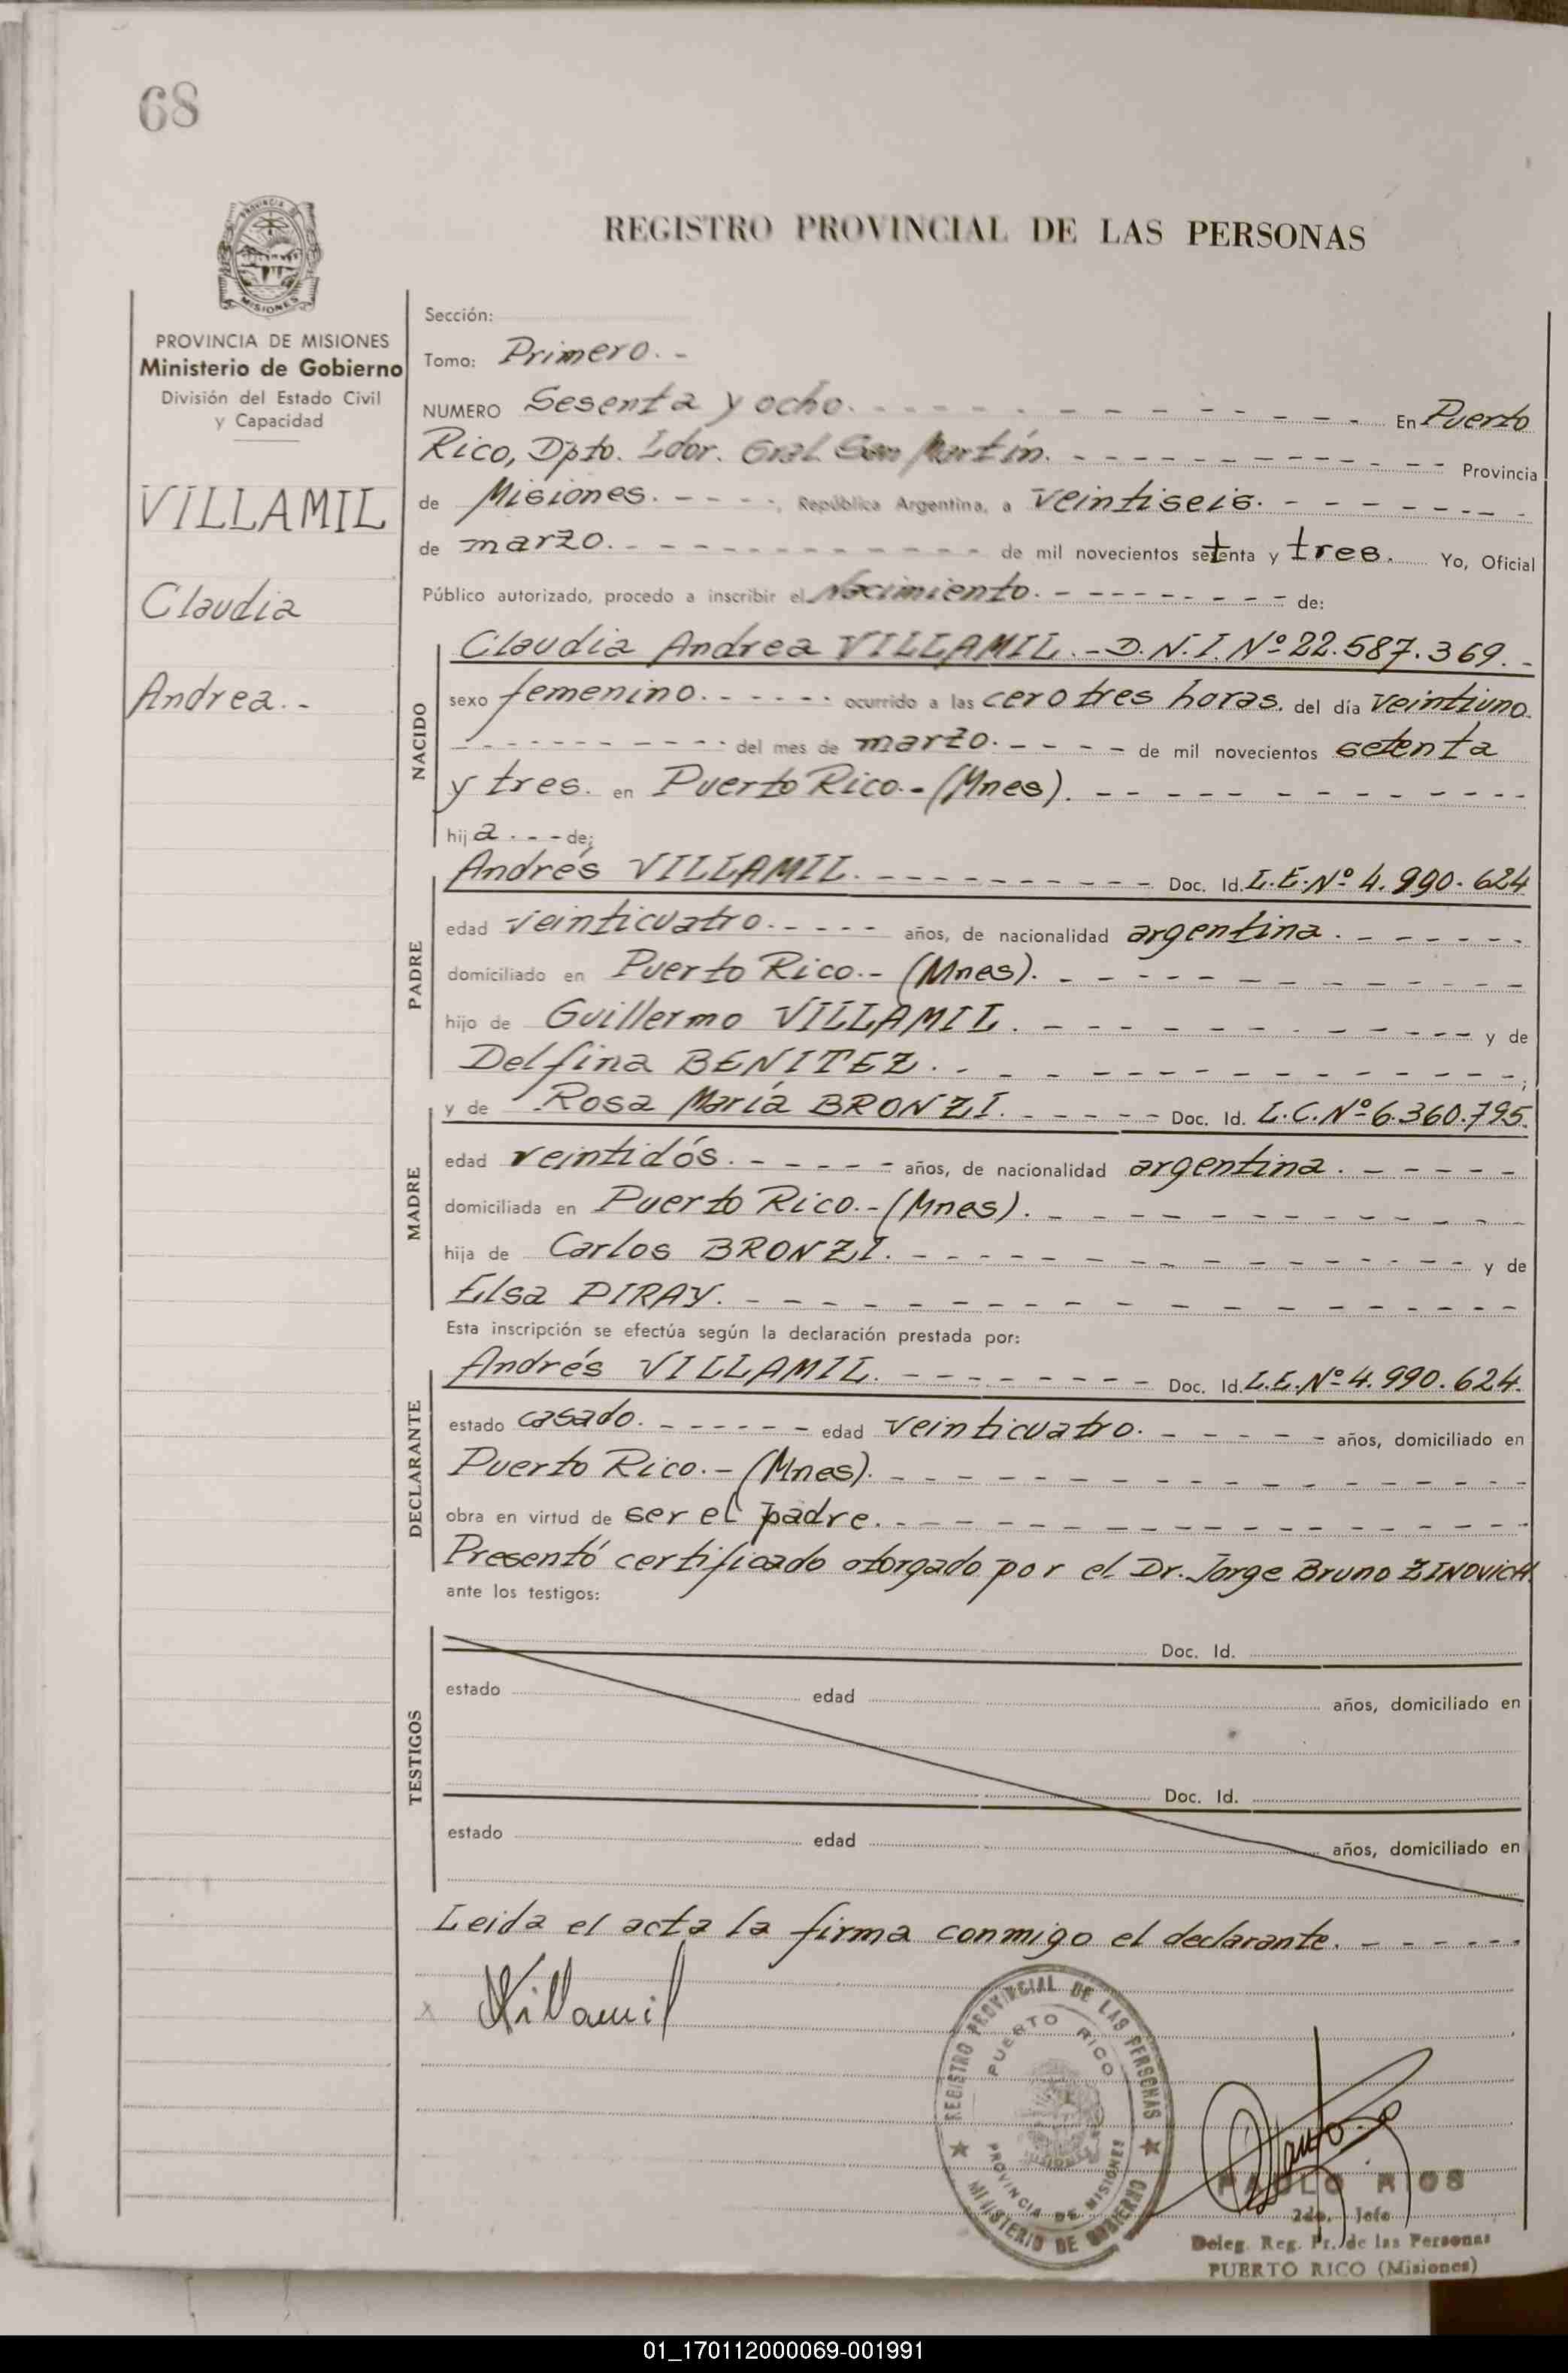 68
REGISTRO PROVINCIAL DE LAS PERSONAS
PROVINCIA DE MISIONES
MISIONES
PROVINCIA DE MISIONES
Ministerio de Gobierno
División del Estado Civil
y Capacidad
VILLAMIL
Claudia
Andrea.-
Sección:
Tomo: Primero.-
NUMERO Sesenta y ocho. En Puerto
Rico, Dpto. Ldor. Gral. San Martín. Provincia
de Misiones. República Argentina, a veintiseis.
de marzo. de mil novecientos setenta y tres. Yo, Oficial
Público autorizado, procedo a inscribir el Nacimiento. de:
NACIDO
Claudia Andrea VILLAMIL.-D.N.I.Nº22.587.369.-
sexo femenino. ocurrido a las cero tres horas. del día veintiuno.
del mes de marzo. de mil novecientos setenta
y tres. en Puerto Rico.-(Mnes).
hija de;
PADRE
Andrés VILLAMIL. Doc. Id. L.E.Nº 4.990.624
edad veinticuatro. años, de nacionalidad argentina.
domiciliado en Puerto Rico.-(Mnes).
hijo de Guillermo VILLAMIL. y de
Delfina BENITEZ.
MADRE
y de Rosa María BRONZI. Doc. Id. L.C.Nº6.360.795.
edad veintidós. años, de nacionalidad argentina.
domiciliada en Puerto Rico.-(Mnes).
hija de Carlos BRONZI. y de
Elsa PIRAY.
Esta inscripción se efectúa según la declaración prestada por:
DECLARANTE
Andrés VILLAMIL. Doc. Id. L.E.Nº4.990.624.
estado casado. edad veinticuatro. años, domiciliado en
Puerto Rico.-(Mnes).
obra en virtud de ser el padre.
Presentó certificado otorgado por el Dr. Jorge Bruno ZINOVICH.
ante los testigos:
TESTIGOS
Doc. Id.
estado edad años, domiciliado en
Doc. Id.
estado edad años, domiciliado en
Leida el acta la firma conmigo el declarante.
x Villamil
REGISTRO PROVINCIAL DE LAS PERSONAS
PUERTO RICO
PROVINCIA DE MISIONES
MINISTERIO DE GOBIERNO
PABLO RIOS
2do. Jefe
Deleg. Reg. Pr. de las Personas
PUERTO RICO (Misiones)
01_170112000069-001991